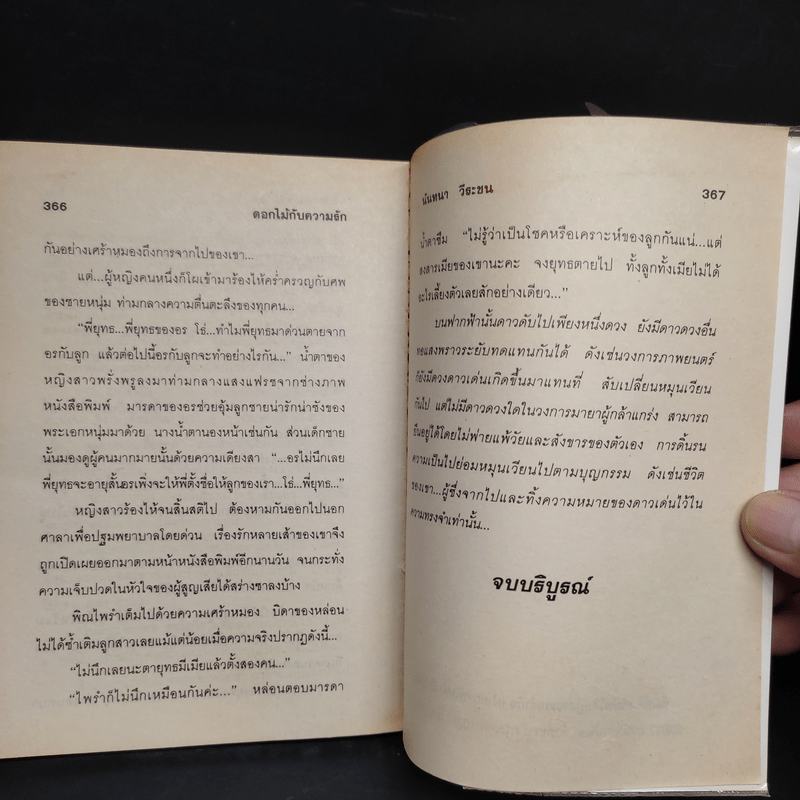 366
ดอกไม้กับความรัก
กันอย่างเศร้าหมองถึงการจากไปของเขา...
แต่...ผู้หญิงคนหนึ่งก็โผเข้ามาร้องไห้คร่ำครวญกับศพ
ของชายหนุ่ม ท่ามกลางความตื่นตะลึงของทุกคน...
“พี่ยุทธ...พี่ยุทธของอร โธ่...ทำไมพี่ยุทธมาด่วนตายจาก
อรกับลูก แล้วต่อไปนี้อรกับลูกจะทำอย่างไรกัน...” น้ำตาของ
หญิงสาวพรั่งพรูลงมาท่ามกลางแสงแฟรชจากช่างภาพ
หนังสือพิมพ์ มารดาของอรช่วยอุ้มลูกชายน่ารักน่าชังของ
พระเอกหนุ่มมาด้วย นางน้ำตานองหน้าเช่นกัน ส่วนเด็กชาย
นั้นมองดูผู้คนมากมายนั้นด้วยความเดียงสา “...อรไม่นึกเลย
พี่ยุทธจะอายุสั้นอรเพิ่งจะให้พี่ตั้งชื่อให้ลูกของเรา...โธ่...พี่ยุทธ...”
หญิงสาวร้องไห้จนสิ้นสติไป ต้องหามกันออกไปนอก
ศาลาเพื่อปฐมพยาบาลโดยด่วน เรื่องรักหลายเส้าของเขาจึง
ถูกเปิดเผยออกมาตามหน้าหนังสือพิมพ์อีกนานวัน จนกระทั่ง
ความเจ็บปวดในหัวใจของผู้สูญเสียได้สร่างซาลงบ้าง
พิณไพรำเต็มไปด้วยความเศร้าหมอง บิดาของหล่อน
ไม่ได้ซ้ำเติมลูกสาวเลยแม้แต่น้อยเมื่อความจริงปรากฏดังนี้...
“ไม่นึกเลยนะตายุทธมีเมียแล้วตั้งสองคน...”
“ไพรำก็ไม่นึกเหมือนกันค่ะ...” หล่อนตอบมารดา
นันทนา วีระชน
367
น้ำตาซึม “ไม่รู้ว่าเป็นโชคหรือเคราะห์ของลูกกันแน่...แต่
สงสารเมียของเขานะคะ จงยุทธตายไป ทั้งลูกทั้งเมียไม่ได้
อะไรเลี้ยงตัวเลยสักอย่างเดียว...”
บนฟากฟ้านั้นดาวดับไปเพียงหนึ่งดวง ยังมีดาวดวงอื่น
ทอแสงพราวระยับทดแทนกันได้ ดังเช่นวงการภาพยนตร์
ก็ยังมีดวงดาวเด่นเกิดขึ้นมาแทนที่ สับเปลี่ยนหมุนเวียน
กันไป แต่ไม่มีดาวดวงใดในวงการมายาผู้กล้าแกร่ง สามารถ
ยืนอยู่ได้โดยไม่พ่ายแพ้วัยและสังขารของตัวเอง การดิ้นรน
ความเป็นไปย่อมหมุนเวียนไปตามบุญกรรม ดังเช่นชีวิต
ของเขา...ผู้ซึ่งจากไปและทิ้งความหมายของดาวเด่นไว้ใน
ความทรงจำเท่านั้น...
จบบริบูรณ์